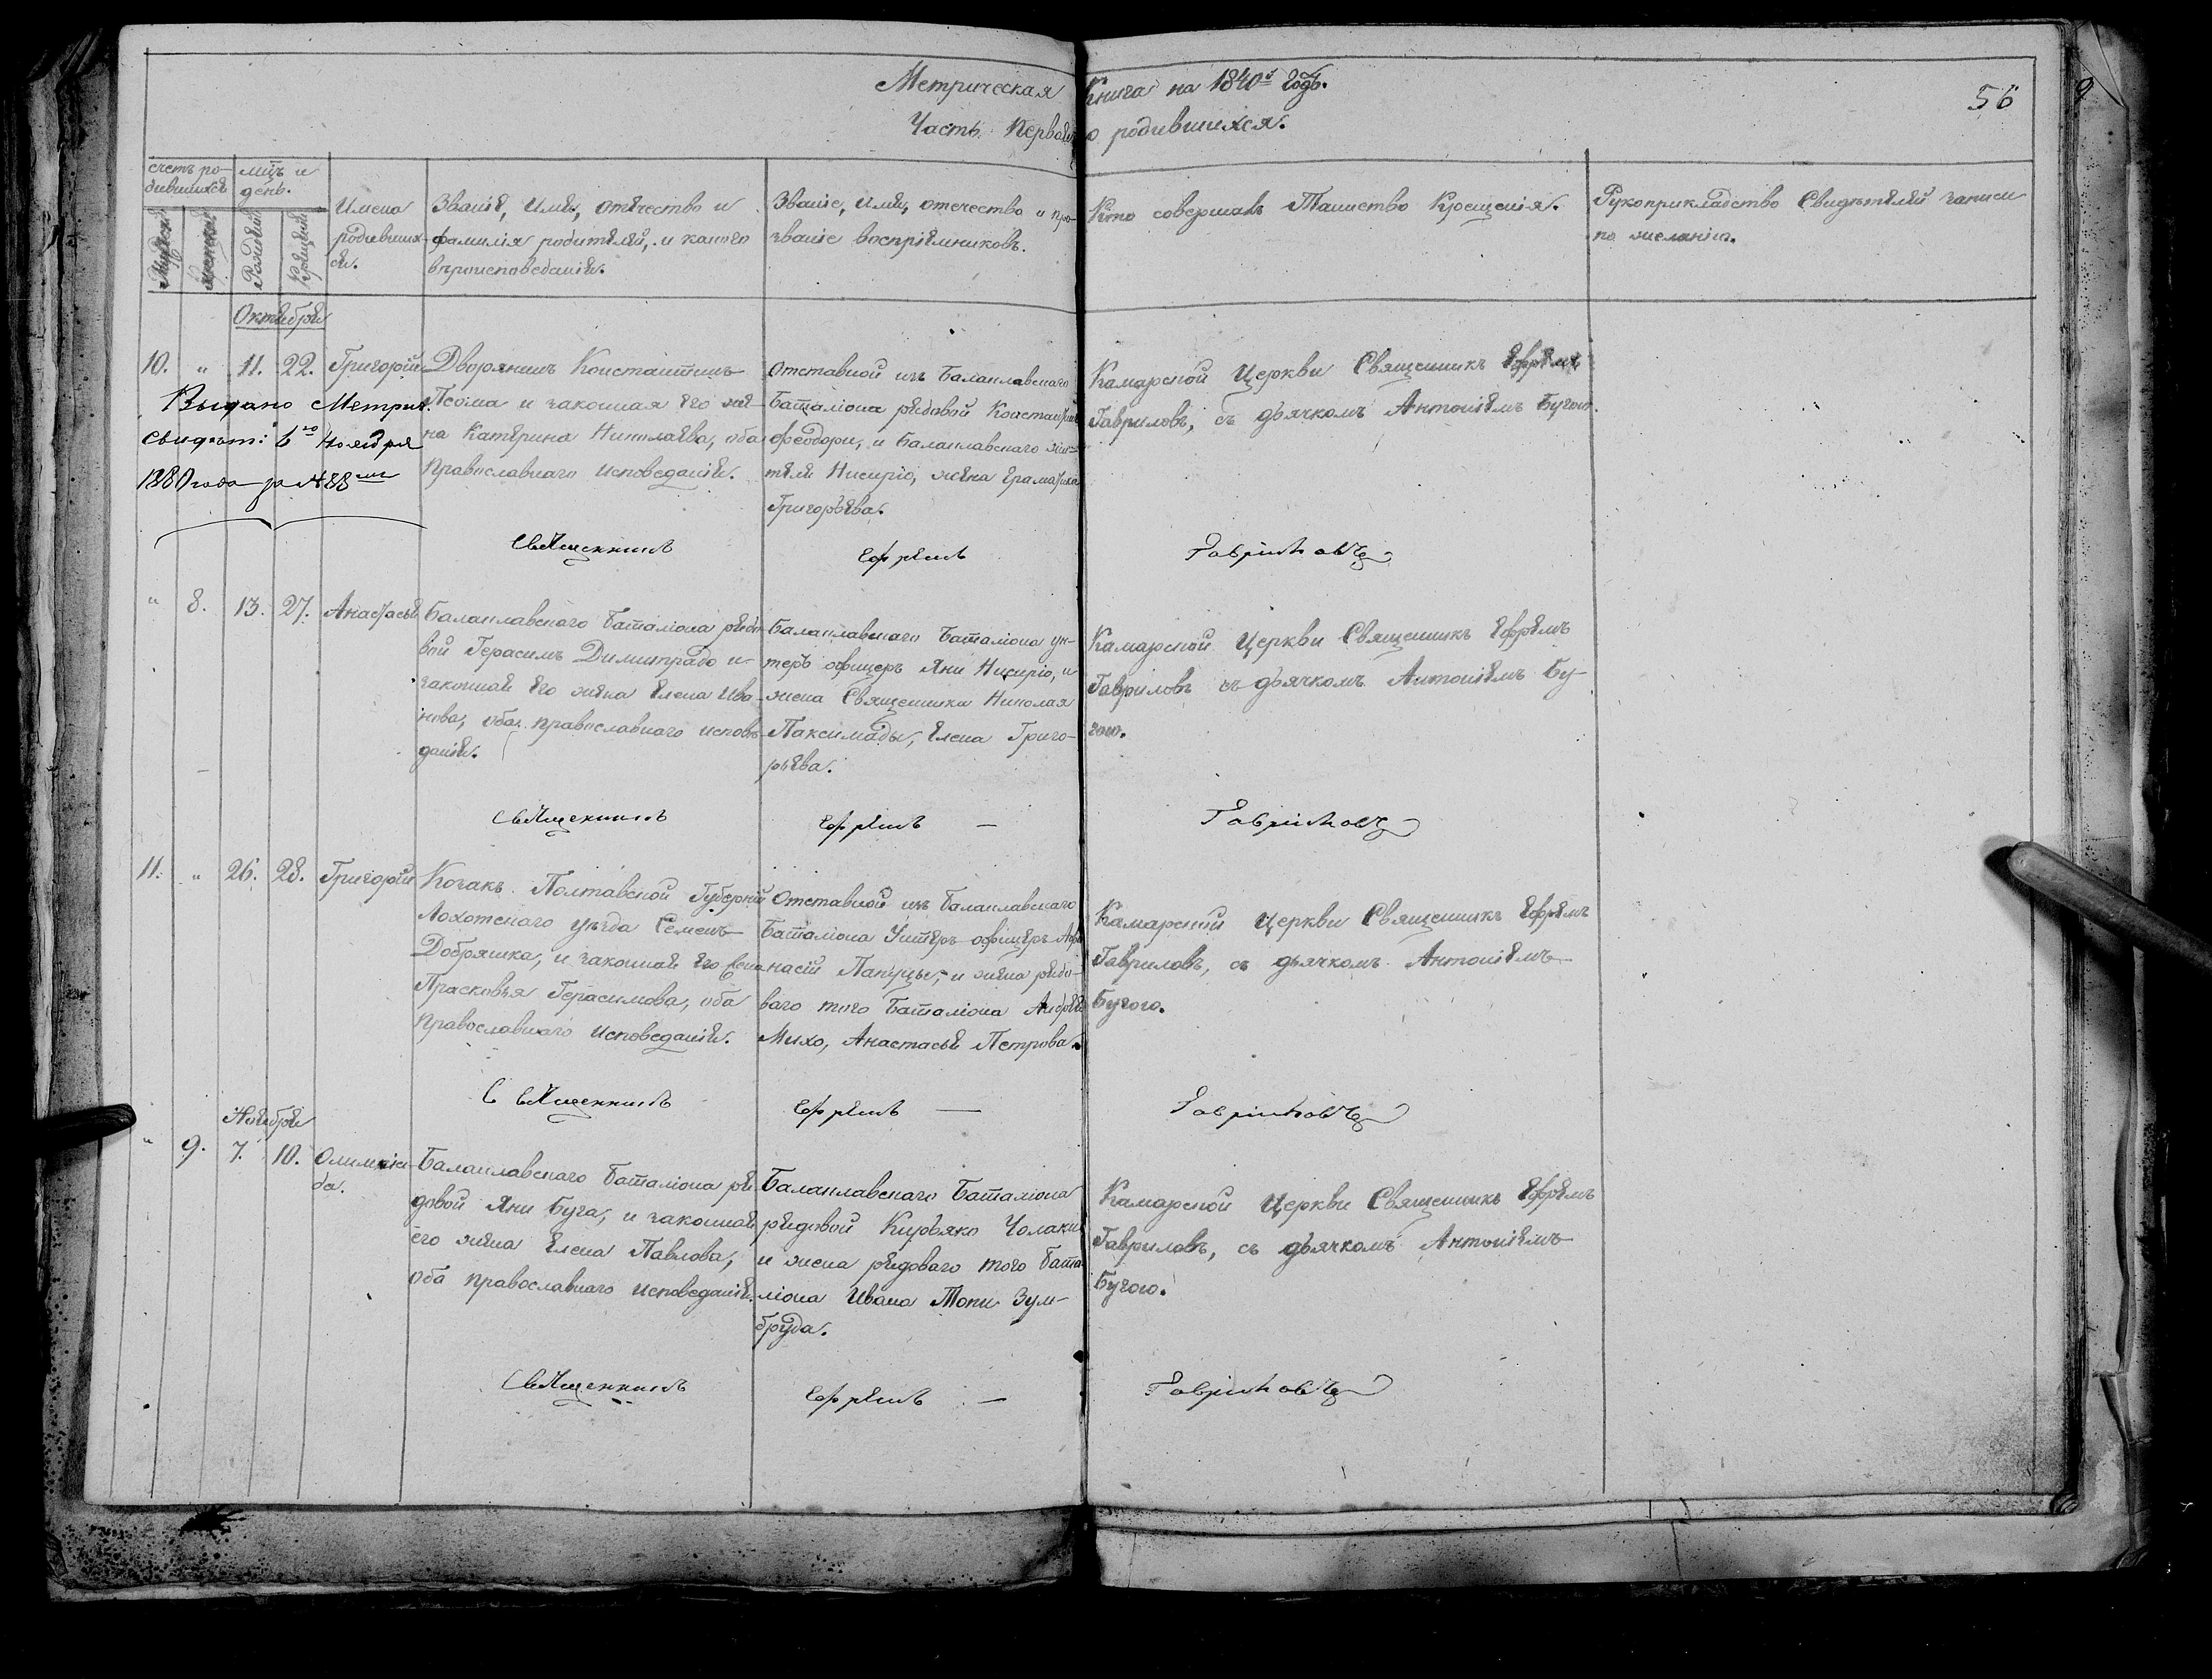 Метрическая Книга на 1840й Годъ.
56
Часть Первая о родившихся.
счетъ ро-
дившихся
мцъ и
день.
Имена
родивших-
ся.
Званіе, Имя, отечество и
фамилія родителей, и какого
вѣроисповеданія.
Званіе, имя, отечество и про-
званіе воспріемниковъ.
Кто совершалъ Таинство Крещенія.
Рукоприкладство Свидѣтелей записи
по желанію.
Мужеск
женска
Рожденій
Крещеній
Октября
10. " 11. 22. Григорій
Дворянинъ Константинъ
Псома и законная его же-
на Катерина Николаева, оба
Православнаго исповеданія.
Отставной изъ Балаклавскаго
Баталіона рядовой Константинъ
Феодори, и Балаклавскаго жи-
теля Нисиріо, жена Ераматика
Григорьева.
Камарской Церкви Священникъ Ефремъ
Гавриловъ, съ дьячкомъ Антоніемъ Бугою.
Выдано Метрич.
свидѣт: 6го Ноября
1880 года за №88мъ
Священникъ Ефремъ Гавриловъ
" 8. 13. 27. Анастасья
Балаклавскаго Баталіона рядо-
вой Герасимъ Димитрадо и
законная его жена Елена Ива-
нова, оба православнаго исповѣ-
данія.
Балаклавскаго Баталіона ун-
теръ офицеръ Яни Нисиріо, и
жена Священника Николая
Паксимады, Елена Григо-
рьева.
Камарской Церкви Священникъ Ефремъ
Гавриловъ съ дьячкомъ Антоніемъ Бу-
гою.
Священникъ Ефремъ — Гавриловъ
11. " 26. 28. Григорій
Козакъ Полтавской Губерніи
Лохотскаго уѣзда Семенъ
Добряшка, и законная его жена
Прасковья Герасимова, оба
Православнаго исповеданія.
Отставной изъ Балаклавскаго
Баталіона Унтеръ-офицеръ Афа
насій Папуцы, и жена рядо-
ваго того Баталіона Андрея
Михо, Анастасья Петрова.
Камарской Церкви Священникъ Ефремъ
Гавриловъ, съ дьячкомъ Антоніемъ
Бугою.
Священникъ Ефремъ — Гавриловъ
Ноября
" 9. 7. 10. Олимпіа-
да.
Балаклавскаго Баталіона ря
довой Яни Буга, и законная
его жена Елена Павлова,
оба православнаго исповеданія.
Балаклавскаго Баталіона
рядовой Кирьяко Чолаки
и жена рядоваго того Бата
ліона Ивана Топи Зум-
бруда.
Камарской Церкви Священникъ Ефремъ
Гавриловъ, съ дьячкомъ Антоніемъ
Бугою.
Священникъ Ефремъ — Гавриловъ